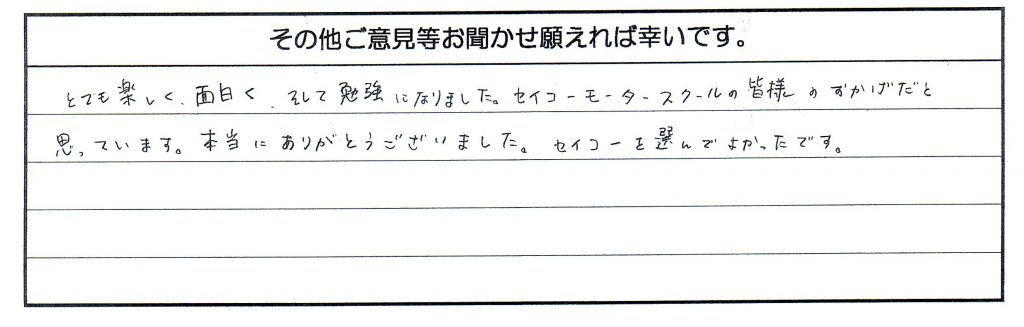 その他ご意見等お聞かせ願えれば幸いです。
とても楽しく、面白く、そして勉強になりました。セイコーモータースクールの皆様のおかげだと
思っています。本当にありがとうございました。セイコーを選んでよかったです。